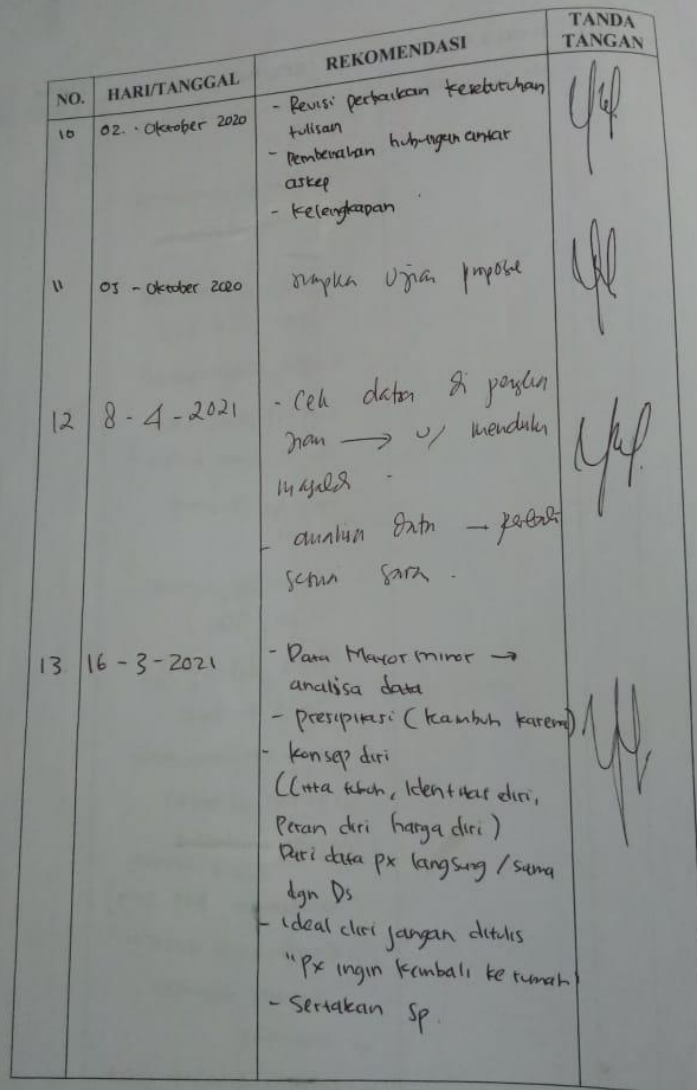 NO. HARI/TANGGAL REKOMENDASI TANDA TANGAN
10 02. Oktober 2020 - Revisi perbaikan keseluruhan
tulisan
- Pembenahan hubungan antar
askep
- Kelengkapan
11 05 - Oktober 2020 Ujian proposal
12 8 - 4 - 2021 - Cek data di pengka
jian → u/ mendukung
masalah
- analisa data → perbaiki
sesuai saran.
13 16 - 3 - 2021 - Data Mayor minor →
analisa data
- presipitasi (Kambuh karena)
- Konsep diri
(Citra tubuh, Identitas diri,
Peran diri harga diri)
Dari data px langsung / sama
dgn Ds
- ideal diri jangan ditulis
"Px ingin kembali ke rumah
- Sertakan Sp.